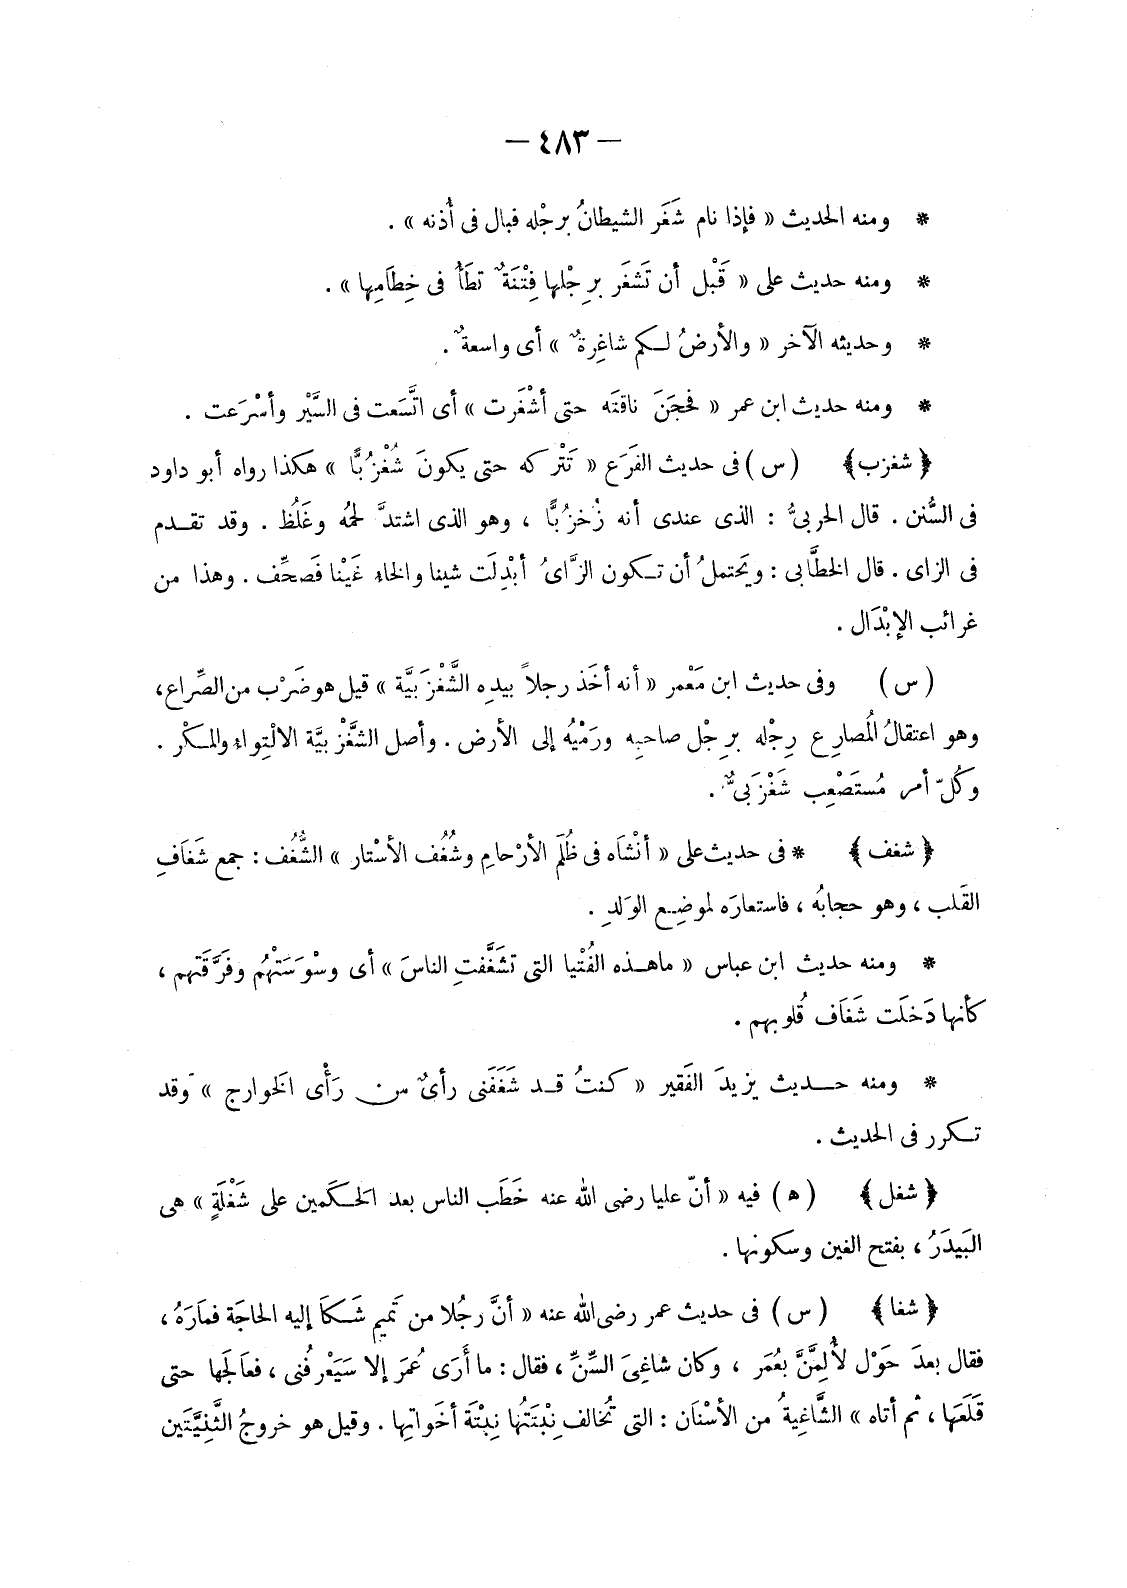 — ٤٨٣ —
* ومنه الحديث « فإذا نام شَغَر الشيطانُ برجْله فبال فى أُذنه » .
* ومنه حديث على « قَبْل أن تَشغَر برِجْلها فِتْنَةٌ تطَأُ فى خِطَامِها » .
* وحديثه الآخر « والأرضُ لكم شاغِرةٌ » أى واسعةٌ .
* ومنه حديث ابن عمر « فحجَنَ ناقتَه حتى أشْغَرت » أى اتَّسَعت فى السَّيْر وأسْرَعت .
﴿ شغزب ﴾ ( س ) فى حديث الفَرَع « تَتْركه حتى يكونَ شُغْزُبًّا » هكذا رواه أبو داود
فى السُّنن . قال الحربىُّ : الذى عندى أنه زُخزُبًّا ، وهو الذى اشتدَّ لحمُه وغَلُظ . وقد تقدم
فى الزاى . قال الخطَّابى : ويَحتملُ أن تكون الزَّاىُ أبْدِلَت شينا والخاء غَيْنا فَصحِّف . وهذا من
غرائب الإبْدَال .
( س ) وفى حديث ابن مَعْمر « أنه أخَذ رجلاً بيدِه الشَّغْزَبيَّة » قيل هو ضَرْب من الصِّراع ،
وهو اعتقالُ المُصارِع رِجْله برِجْل صاحبِه ورَمْيُه إلى الأرض . وأصل الشَّغْزبيَّة الالْتِواء والمكْر .
وكُلّ أمر مُستَصْعِب شَغْزَبىٌّ .
﴿ شغف ﴾ * فى حديث على « أنْشَاه فى ظُلَم الأرْحامِ وشُغُف الأسْتار » الشُّغُف : جمع شَغَافِ
القَلب ، وهو حجابُه ، فاستعارَه لموضِع الوَلدِ .
* ومنه حديث ابن عباس « ماهذه الفُتْيا التى تشَغَّفتِ الناسَ » أى وسْوَسَتْهُم وفرَّقَتهم ،
كأنها دَخلَت شَغَاف قُلوبهم .
* ومنه حديث يزيدَ الفَقير « كنتُ قد شَغَفَنى رأىٌ من رَأْى الخوارج » وقد
تكرر فى الحديث .
﴿ شغل ﴾ ( ه ) فيه « أنّ عليا رضى الله عنه خَطَب الناس بعد الحَكَمين على شَغْلَةٍ » هى
البَيدَرُ ، بفتح الغين وسكونها .
﴿ شغا ﴾ ( س ) فى حديث عمر رضى الله عنه « أنَّ رجُلا من تَميم شَكاَ إليه الحاجَة فمارَهُ ،
فقال بعدَ حَوْل لأُلِمَّنَّ بعُمَر ، وكان شاغِىَ السِّنِّ ، فقال : ما أَرَى عُمَرَ إلا سَيَعْرفُنى ، فعاَلَجها حتى
قَلَعَها ، ثم أتاه » الشَّاغِيةُ من الأسْنَان : التى تُخالف نِبْتَتُها نِبْتَة أخَواتِها . وقيل هو خروجُ الثَّنِيَّتَين